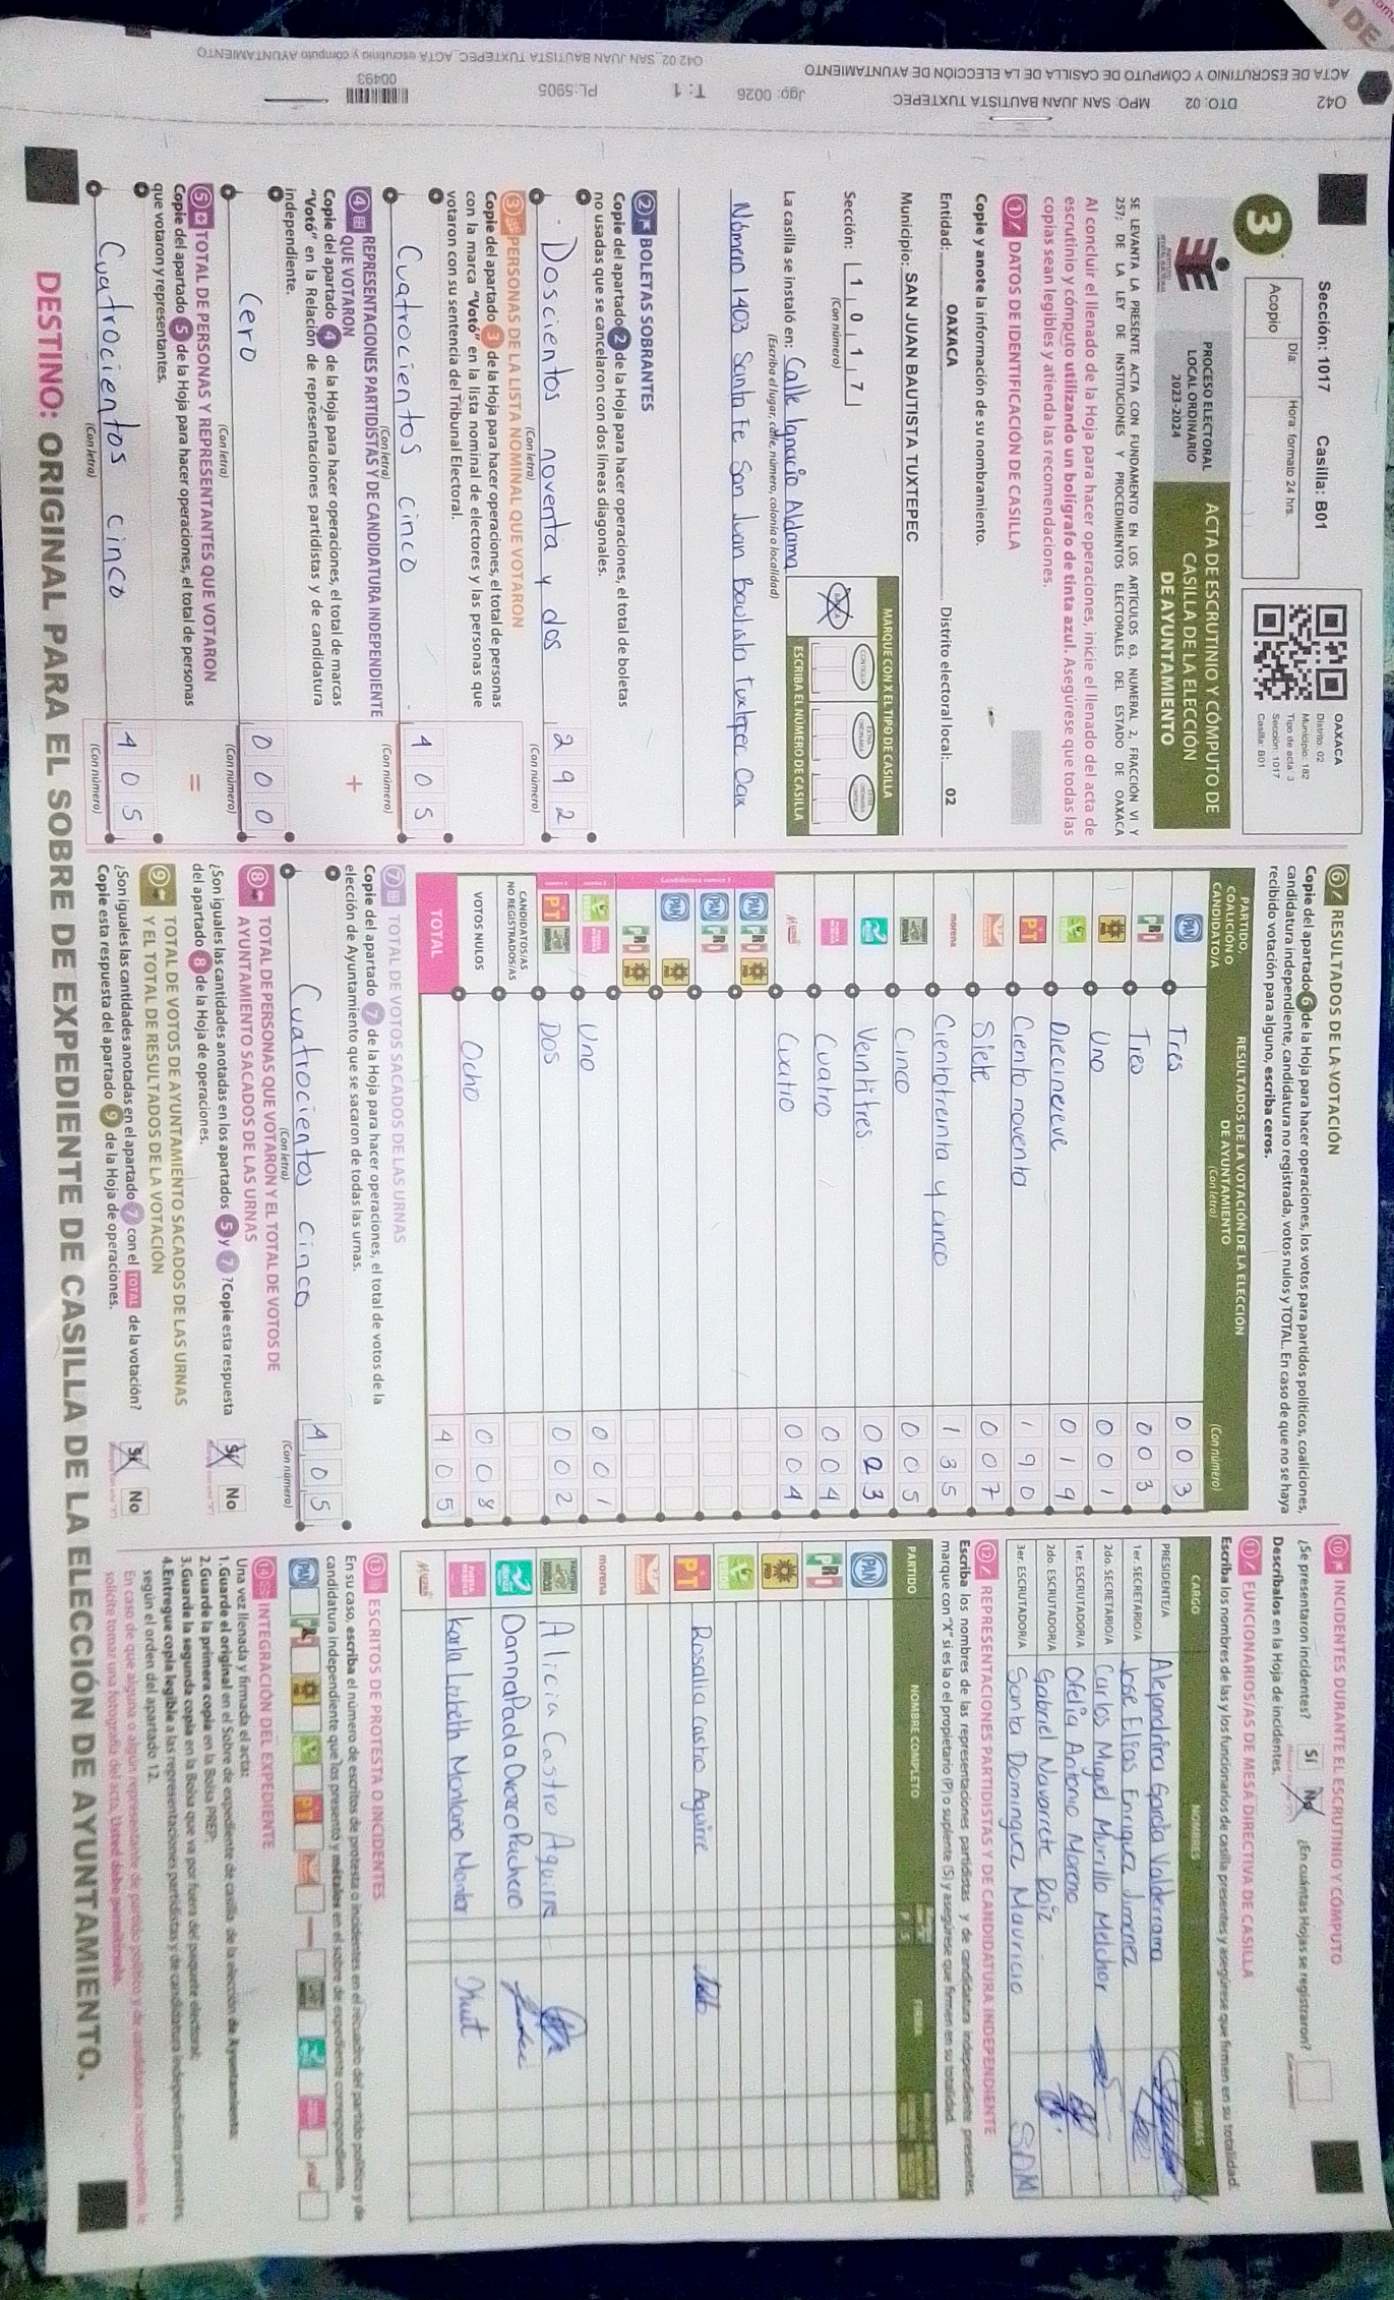 042 DTO: 02 MPO: SAN JUAN BAUTISTA TUXTEPEC Jgp: 0026 T: 1 PL:5905 00493
ACTA DE ESCRUTINIO Y CÓMPUTO DE CASILLA DE LA ELECCIÓN DE AYUNTAMIENTO
042 02_SAN JUAN BAUTISTA TUXTEPEC_ACTA escrutinio y cómputo AYUNTAMIENTO
Sección: 1017 Casilla: B01
3
Día: Hora: formato 24 hrs.
Acopio
OAXACA
Distrito: 02
Municipio: 182
Tipo de acta: 3
Sección: 1017
Casilla: B01
PROCESO ELECTORAL
LOCAL ORDINARIO
2023-2024
ACTA DE ESCRUTINIO Y CÓMPUTO DE
CASILLA DE LA ELECCIÓN
DE AYUNTAMIENTO
SE LEVANTA LA PRESENTE ACTA CON FUNDAMENTO EN LOS ARTÍCULOS 63, NUMERAL 2, FRACCIÓN VI Y
257; DE LA LEY DE INSTITUCIONES Y PROCEDIMIENTOS ELECTORALES DEL ESTADO DE OAXACA
Al concluir el llenado de la Hoja para hacer operaciones, inicie el llenado del acta de
escrutinio y cómputo utilizando un bolígrafo de tinta azul. Asegúrese que todas las
copias sean legibles y atienda las recomendaciones.
1 DATOS DE IDENTIFICACIÓN DE CASILLA
Copie y anote la información de su nombramiento.
Entidad: OAXACA Distrito electoral local: 02
Municipio: SAN JUAN BAUTISTA TUXTEPEC
MARQUE CON X EL TIPO DE CASILLA
Sección: 1 0 1 7
(Con número)
ESCRIBA EL NÚMERO DE CASILLA
La casilla se instaló en: Calle Ignacio Aldama
(Escriba el lugar, calle, número, colonia o localidad)
Número 1403 Santa Fe San Juan Bautista Tuxtepec Oax
2 BOLETAS SOBRANTES
Copie del apartado 2 de la Hoja para hacer operaciones, el total de boletas
no usadas que se cancelaron con dos líneas diagonales.
Doscientos noventa y dos 2 9 2
(Con letra) (Con número)
3 PERSONAS DE LA LISTA NOMINAL QUE VOTARON
Copie del apartado 3 de la Hoja para hacer operaciones, el total de personas
con la marca "Votó" en la lista nominal de electores y las personas que
votaron con su sentencia del Tribunal Electoral.
Cuatrocientos cinco 4 0 5
(Con letra) (Con número)
4 REPRESENTACIONES PARTIDISTAS Y DE CANDIDATURA INDEPENDIENTE
QUE VOTARON +
Copie del apartado 4 de la Hoja para hacer operaciones, el total de marcas
"Votó" en la Relación de representaciones partidistas y de candidatura
independiente.
Cero 0 0 0
(Con letra) (Con número)
5 TOTAL DE PERSONAS Y REPRESENTANTES QUE VOTARON =
Copie del apartado 5 de la Hoja para hacer operaciones, el total de personas
que votaron y representantes.
Cuatrocientos cinco 4 0 5
(Con letra) (Con número)
6 RESULTADOS DE LA VOTACIÓN
Copie del apartado 6 de la Hoja para hacer operaciones, los votos para partidos políticos, coaliciones,
candidatura independiente, candidatura no registrada, votos nulos y TOTAL. En caso de que no se haya
recibido votación para alguno, escriba ceros.
PARTIDO, COALICIÓN O CANDIDATO/A
RESULTADOS DE LA VOTACIÓN DE LA ELECCIÓN
DE AYUNTAMIENTO
(Con letra) (Con número)
PAN Tres 0 0 3
PRI Tres 0 0 3
Uno 0 0 1
Diecinueve 0 1 9
PT Ciento noventa 1 9 0
Siete 0 0 7
morena Cientotreinta y cinco 1 3 5
Cinco 0 0 5
Veintitres 0 2 3
Cuatro 0 0 4
Cuatro 0 0 4
PAN PRI
PAN PRI
PAN
PRI
Uno 0 0 1
PT Dos 0 0 2
CANDIDATOS/AS
NO REGISTRADOS/AS
VOTOS NULOS Ocho 0 0 8
TOTAL 4 0 5
7 TOTAL DE VOTOS SACADOS DE LAS URNAS
Copie del apartado 7 de la Hoja para hacer operaciones, el total de votos de la
elección de Ayuntamiento que se sacaron de todas las urnas.
Cuatrocientos cinco 4 0 5
(Con letra) (Con número)
8 TOTAL DE PERSONAS QUE VOTARON Y EL TOTAL DE VOTOS DE
AYUNTAMIENTO SACADOS DE LAS URNAS
¿Son iguales las cantidades anotadas en los apartados 5 y 7? Copie esta respuesta
del apartado 8 de la Hoja de operaciones.
Sí No
9 TOTAL DE VOTOS DE AYUNTAMIENTO SACADOS DE LAS URNAS
Y EL TOTAL DE RESULTADOS DE LA VOTACIÓN
¿Son iguales las cantidades anotadas en el apartado 7 con el TOTAL de la votación?
Copie esta respuesta del apartado 9 de la Hoja de operaciones.
Sí No
10 INCIDENTES DURANTE EL ESCRUTINIO Y CÓMPUTO
¿Se presentaron incidentes? Sí No ¿En cuántas Hojas se registraron?
Descríbalos en la Hoja de incidentes.
11 FUNCIONARIOS/AS DE MESA DIRECTIVA DE CASILLA
Escriba los nombres de las y los funcionarios de casilla presentes y asegúrese que firmen en su totalidad.
CARGO NOMBRES FIRMAS
PRESIDENTE/A Alejandrina García Valderrama
1er. SECRETARIO/A Jose Elías Enriquez Jimenez
2do. SECRETARIO/A Carlos Miguel Murillo Melchor
1er. ESCRUTADOR/A Ofelia Antonio Moreno
2do. ESCRUTADOR/A Gabriel Navarrete Roiz
3er. ESCRUTADOR/A Santa Dominguez Mauricio SDM
12 REPRESENTACIONES PARTIDISTAS Y DE CANDIDATURA INDEPENDIENTE
Escriba los nombres de las representaciones partidistas y de candidatura independiente presentes,
marque con "X" si es la o el propietario (P) o suplente (S) y asegúrese que firmen en su totalidad.
PARTIDO NOMBRE COMPLETO FIRMA
PAN
PRI
PT Rosalia Castro Aguirre
morena
Alicia Castro Aguirre
Karla Lizbeth Montano
13 ESCRITOS DE PROTESTA O INCIDENTES
En su caso, escriba el número de escritos de protesta o incidentes en el recuadro del partido político y de
candidatura independiente que los presentó y métalos en el sobre de expediente correspondiente.
PAN PRI PT
14 INTEGRACIÓN DEL EXPEDIENTE
Una vez llenada y firmada el acta:
1.Guarde el original en el Sobre de expediente de casilla de la elección de Ayuntamiento.
2.Guarde la primera copia en la Bolsa PREP.
3.Guarde la segunda copia en la Bolsa que va por fuera del paquete electoral.
4.Entregue copia legible a las representaciones partidistas y de candidatura independiente presentes,
según el orden del apartado 12.
En caso de que alguna o algún representante de partido político y de candidatura independiente, le
solicite tomar una fotografía del acta, Usted debe permitírselo.
DESTINO: ORIGINAL PARA EL SOBRE DE EXPEDIENTE DE CASILLA DE LA ELECCIÓN DE AYUNTAMIENTO.